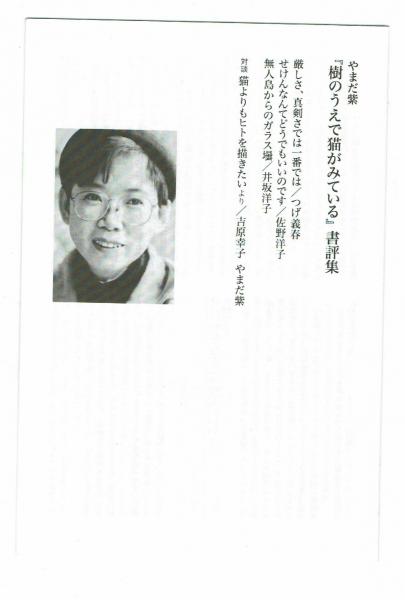 やまだ紫
『樹のうえで猫がみている』書評集
厳しさ、真剣さでは一番では／つげ義春
せけんなんてどうでもいいのです／佐野洋子
無人島からのガラス壜／井坂洋子
対談 猫よりもヒトを描きたいより／吉原幸子 やまだ紫